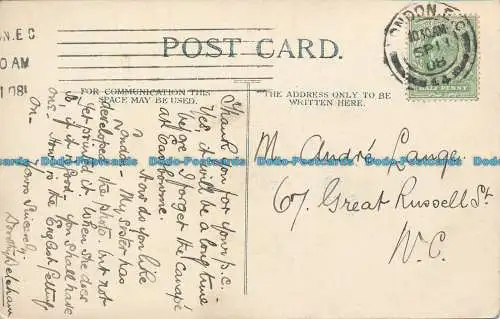 LONDON. E.C
10.30 AM
SP 11
08
44
N. E C
0 AM
1 08
HALF PENNY
POST CARD.
FOR COMMUNICATION THIS
SPACE MAY BE USED.
THE ADDRESS ONLY TO BE
WRITTEN HERE.
Thank you for your p.c.
Yes, it will be a long time
before I forget the canapé
at Eastbourne.
How do you like
London - My sister has
developed the photo. but not
yet printed it. When she does
so, if it is good - you shall have
one. How is the English getting
on -
Yours Sincerely
Dorothy
M. André Lange
67. Great Russell St
W.C.
Postcards-Cards